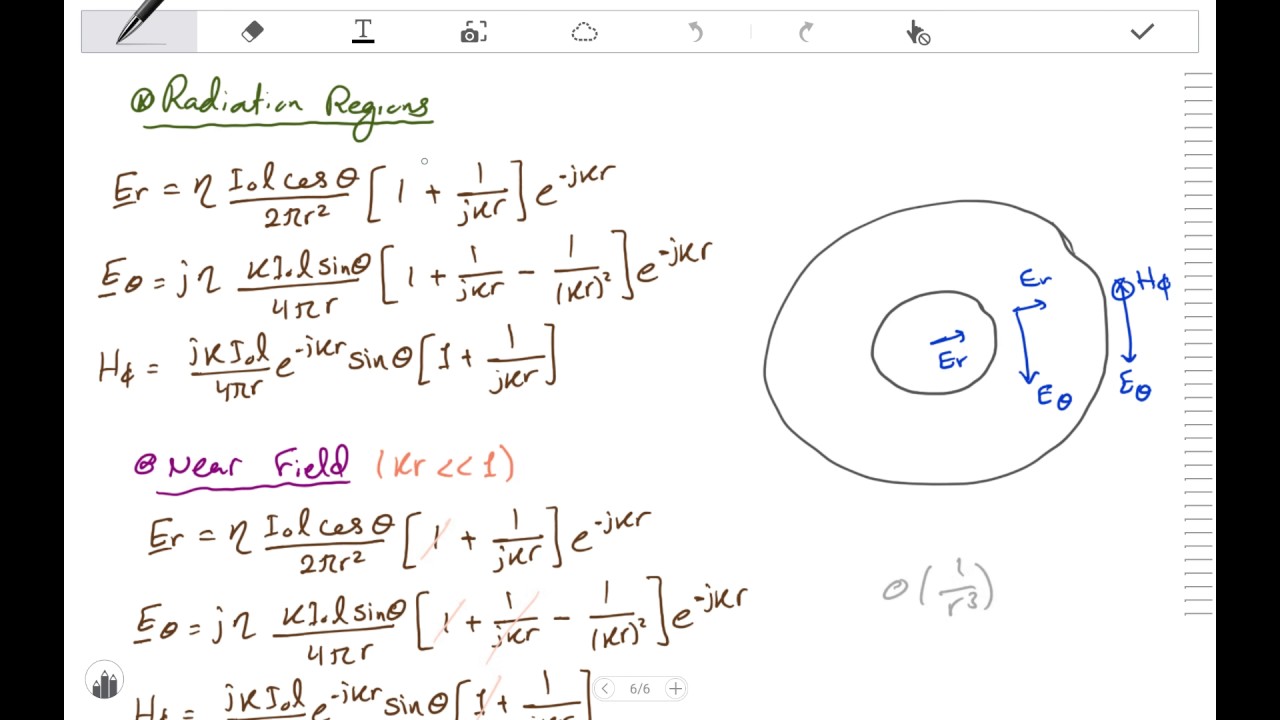 Radiation Regions
Er = η I₀l cosθ / 2πr² [1 + 1/jkr] e^-jkr
Eθ = jη kI₀l sinθ / 4πr [1 + 1/jkr - 1/(kr)²] e^-jkr
Hϕ = jkI₀l / 4πr e^-jkr sinθ [1 + 1/jkr]
Er
Er
Eθ
Hϕ
Eθ
Near Field (kr << 1)
Er = η I₀l cosθ / 2πr² [1 + 1/jkr] e^-jkr
Eθ = jη kI₀l sinθ / 4πr [1 + 1/jkr - 1/(kr)²] e^-jkr
O(1/r³)
Hϕ = jkI₀l e^-jkr sinθ [1 + 1/jkr]
T
6/6